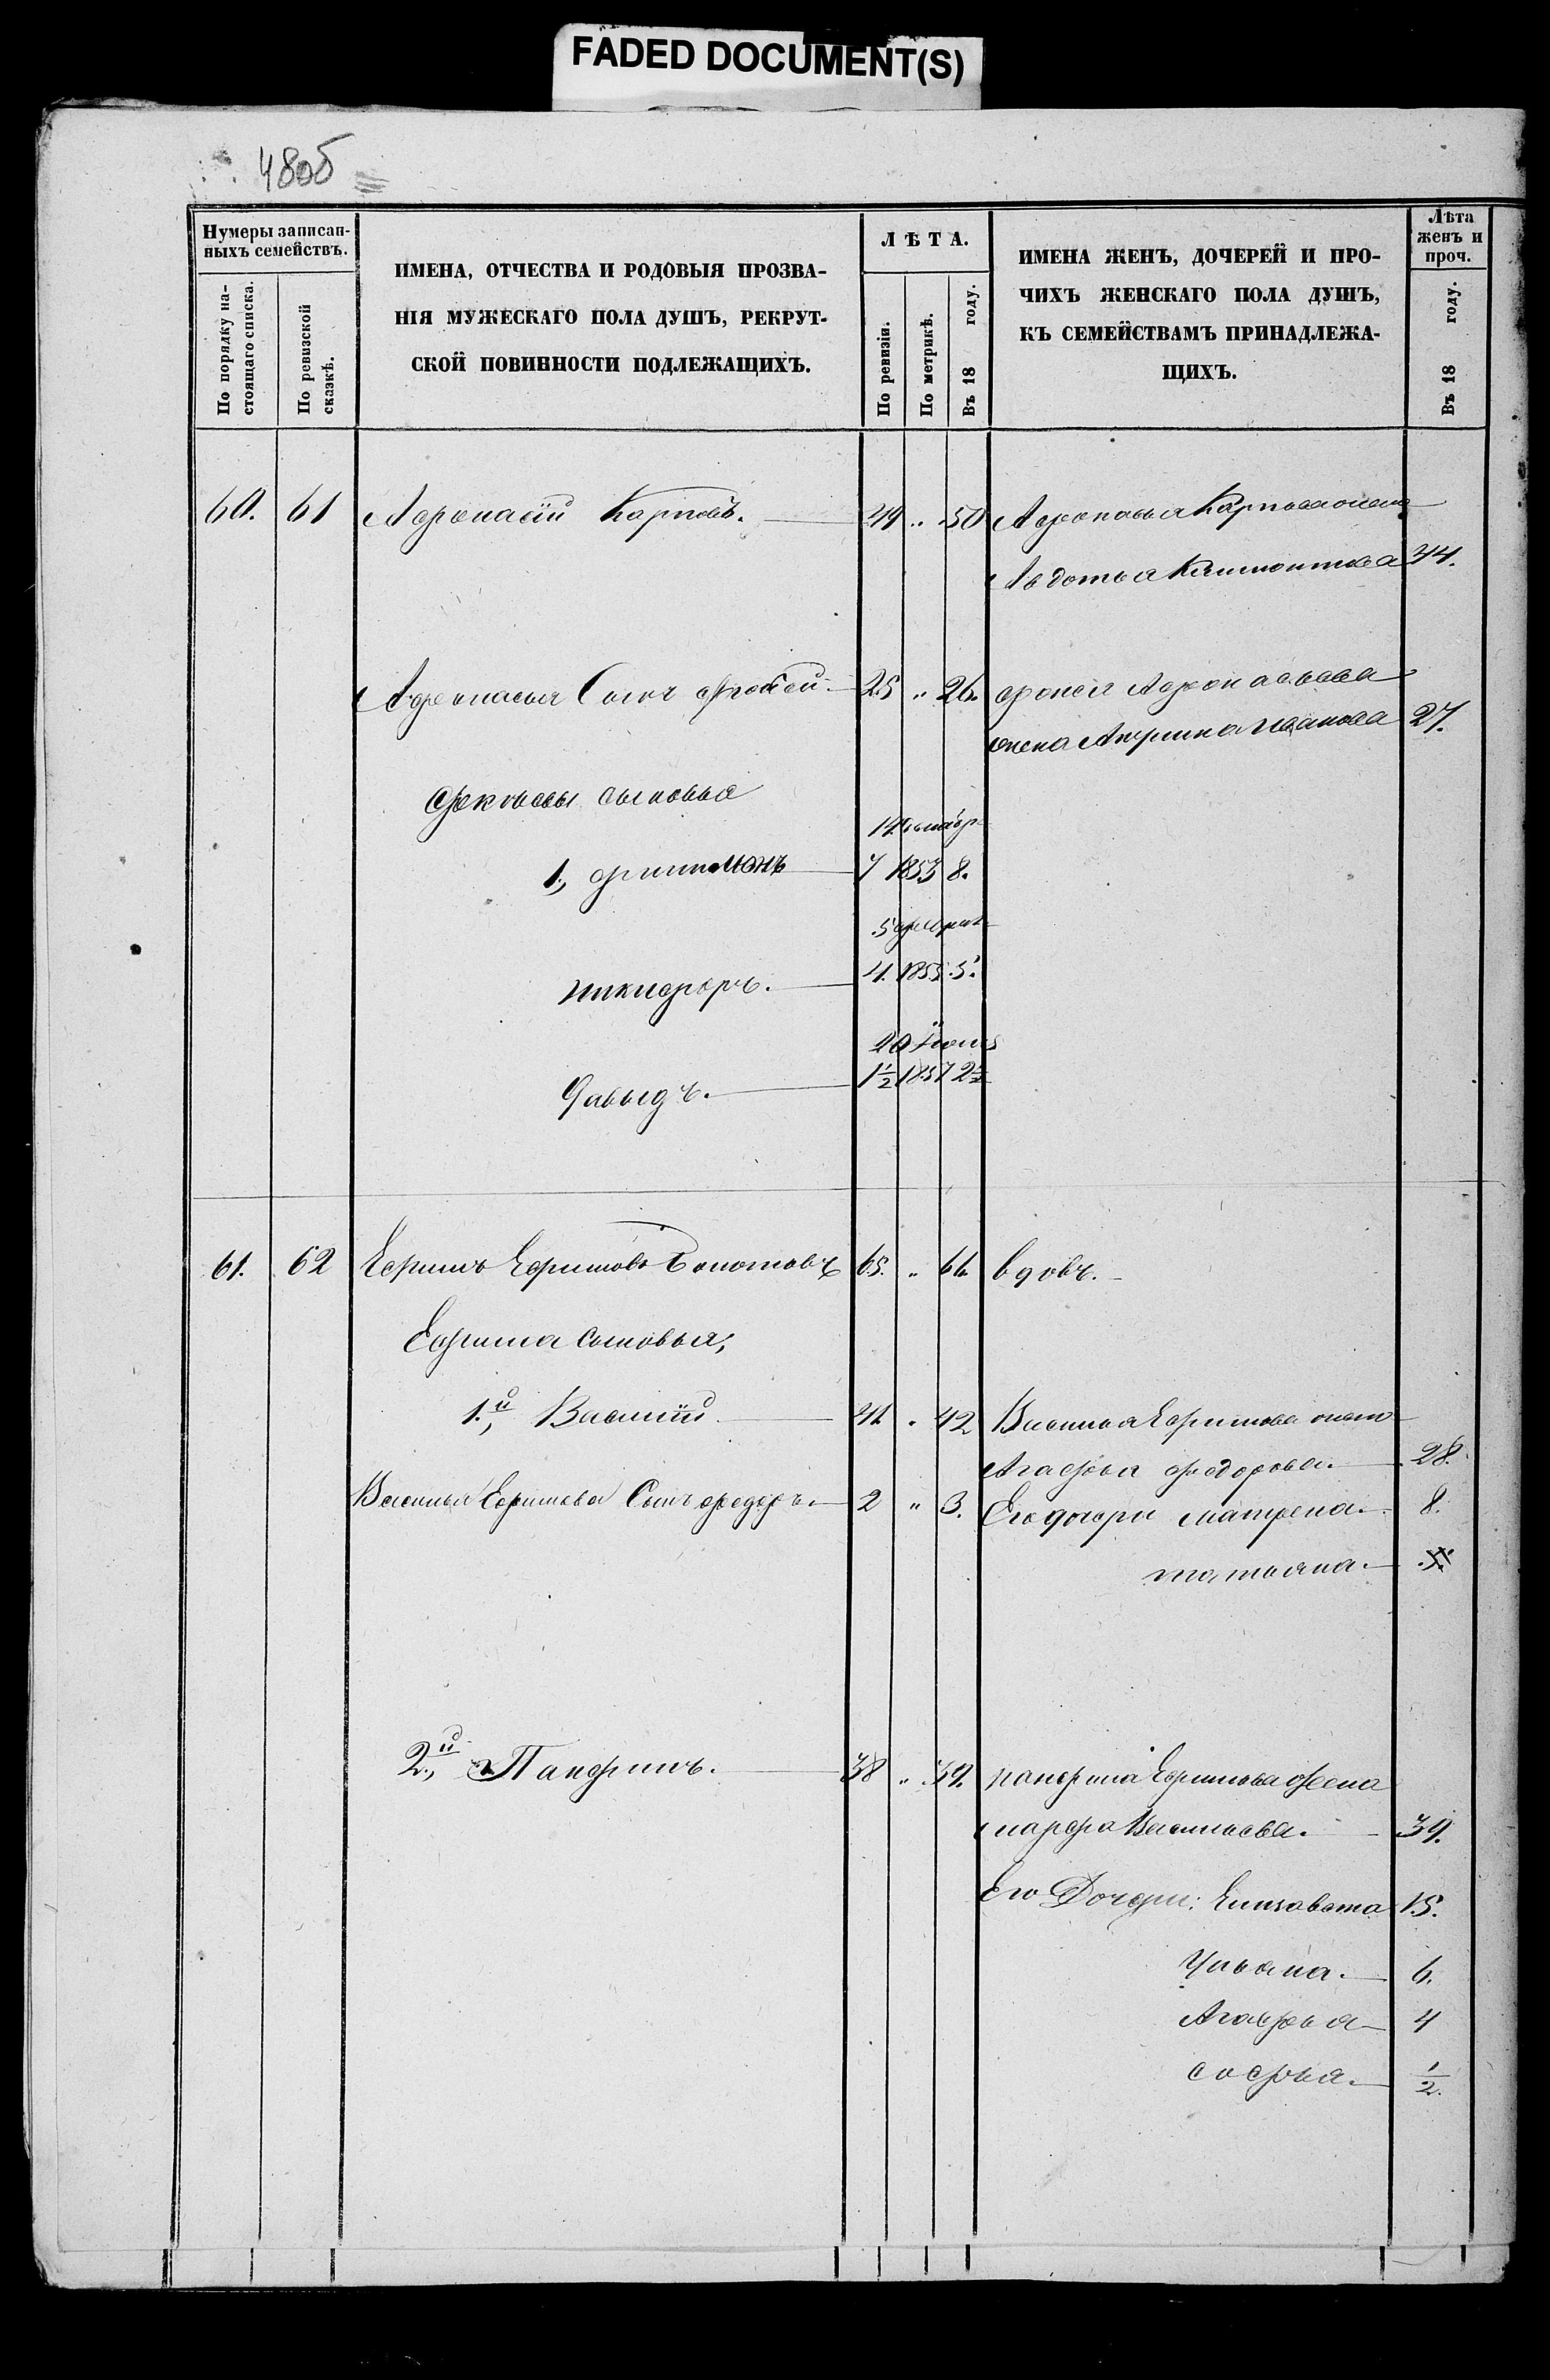 FADED DOCUMENT(S)
480б
Нумеры записан-
ныхъ семействъ.
По порядку на-
стоящаго списка.
По ревизской
сказкѣ.
ИМЕНА, ОТЧЕСТВА И РОДОВЫЯ ПРОЗВА-
НІЯ МУЖЕСКАГО ПОЛА ДУШЪ, РЕКРУТ-
СКОЙ ПОВИННОСТИ ПОДЛЕЖАЩИХЪ.
ЛѢТА.
По ревизіи.
По метрикѣ.
Въ 18 году.
ИМЕНА ЖЕНЪ, ДОЧЕРЕЙ И ПРО-
ЧИХЪ ЖЕНСКАГО ПОЛА ДУШЪ,
КЪ СЕМЕЙСТВАМЪ ПРИНАДЛЕЖА-
ЩИХЪ.
Лѣта
женъ и
проч.
Въ 18 году.
60. 61 Афонасій Карповъ. 49 „ 50 Афонасья Карпова жена
Авдотья 44.
Афонасья Сынъ 25 „ 26. Афонасьева
жена Акулина Иванова 27.
сыновья
14
1, филимонъ 7 1853 8.
5 феврал
никифоръ. 4. 1855 5.
20 Іюня
Давыдъ. 1½ 1857 2½
61. 62 Ефимъ Ефимовъ 65. „ 66 вдовъ.
Ефима сыновья,
1.й, Василій 41 „ 42 Василья Ефимова жена
Агафья федорова. 28.
Василья Ефимова Сынъ федоръ. 2 „ 3. Его дочери матрена. 8.
татьяна.
2.й, Панфилъ. 38 „ 39. панфила Ефимова жена
марфа Васильева. 39.
Его Дочери: Елизавета 15.
Ульяна. 6.
Агафья 4
софья. ½.